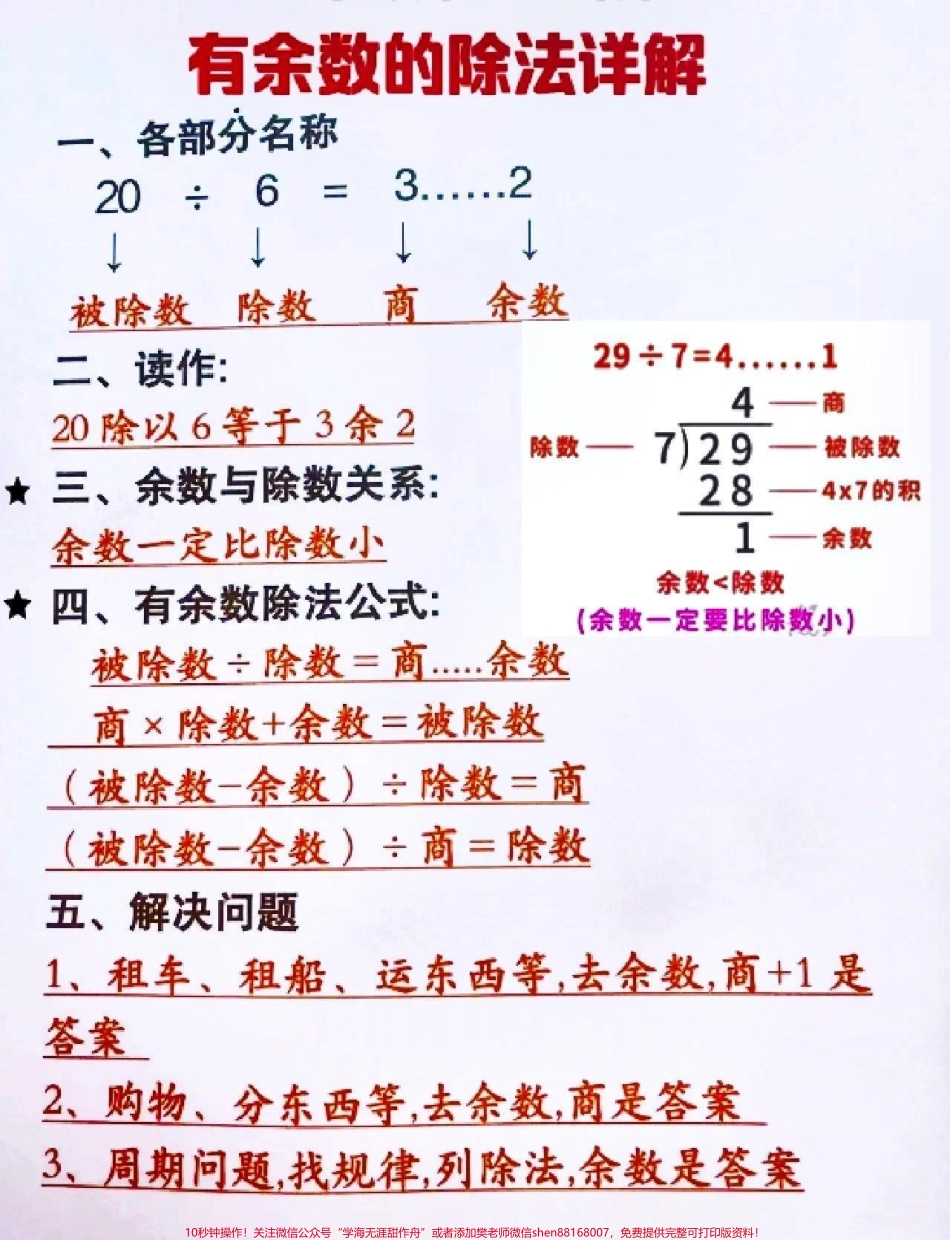 有余数的除法详解
一、各部分名称
20 ÷ 6 = 3……2
↓ ↓ ↓ ↓
被除数 除数 商 余数
二、读作:
20除以6等于3余2
★ 三、余数与除数关系:
余数一定比除数小
29÷7=4……1
4 —— 商
除数 —— 7)29 —— 被除数
28 —— 4x7的积
1 —— 余数
余数<除数
(余数一定要比除数小)
★ 四、有余数除法公式:
被除数÷除数=商.....余数
商×除数+余数=被除数
(被除数-余数)÷除数=商
(被除数-余数)÷商=除数
五、解决问题
1、租车、租船、运东西等,去余数,商+1是
答案
2、购物、分东西等,去余数,商是答案
3、周期问题,找规律,列除法,余数是答案
10秒钟操作!关注微信公众号“学海无涯甜作舟”或者添加樊老师微信shen88168007,免费提供完整可打印版资料!